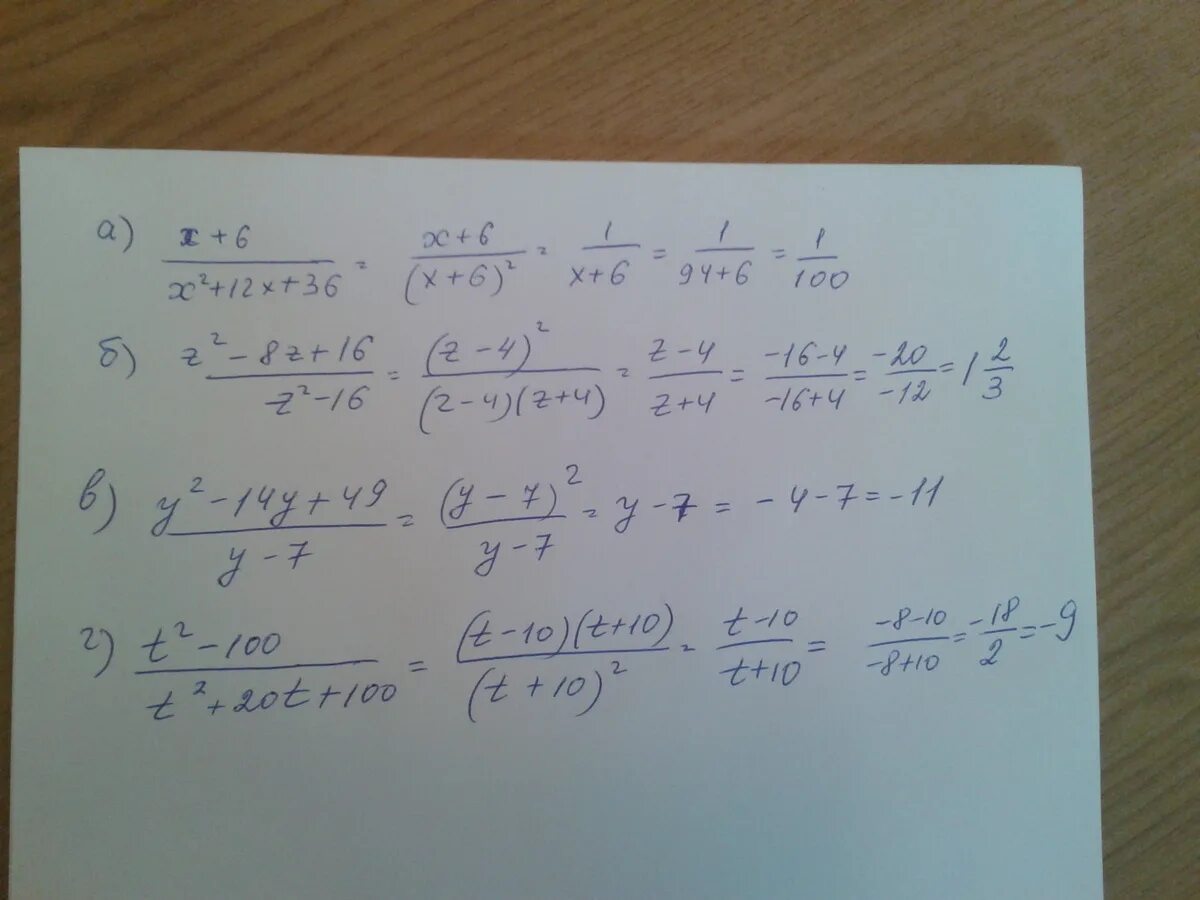 а) x+6/x²+12x+36 = x+6/(x+6)² = 1/x+6 = 1/94+6 = 1/100
б) z²-8z+16/z²-16 = (z-4)²/(z-4)(z+4) = z-4/z+4 = -16-4/-16+4 = -20/-12 = 1 2/3
в) y²-14y+49/y-7 = (y-7)²/y-7 = y-7 = -4-7 = -11
г) t²-100/t²+20t+100 = (t-10)(t+10)/(t+10)² = t-10/t+10 = -8-10/-8+10 = -18/2 = -9